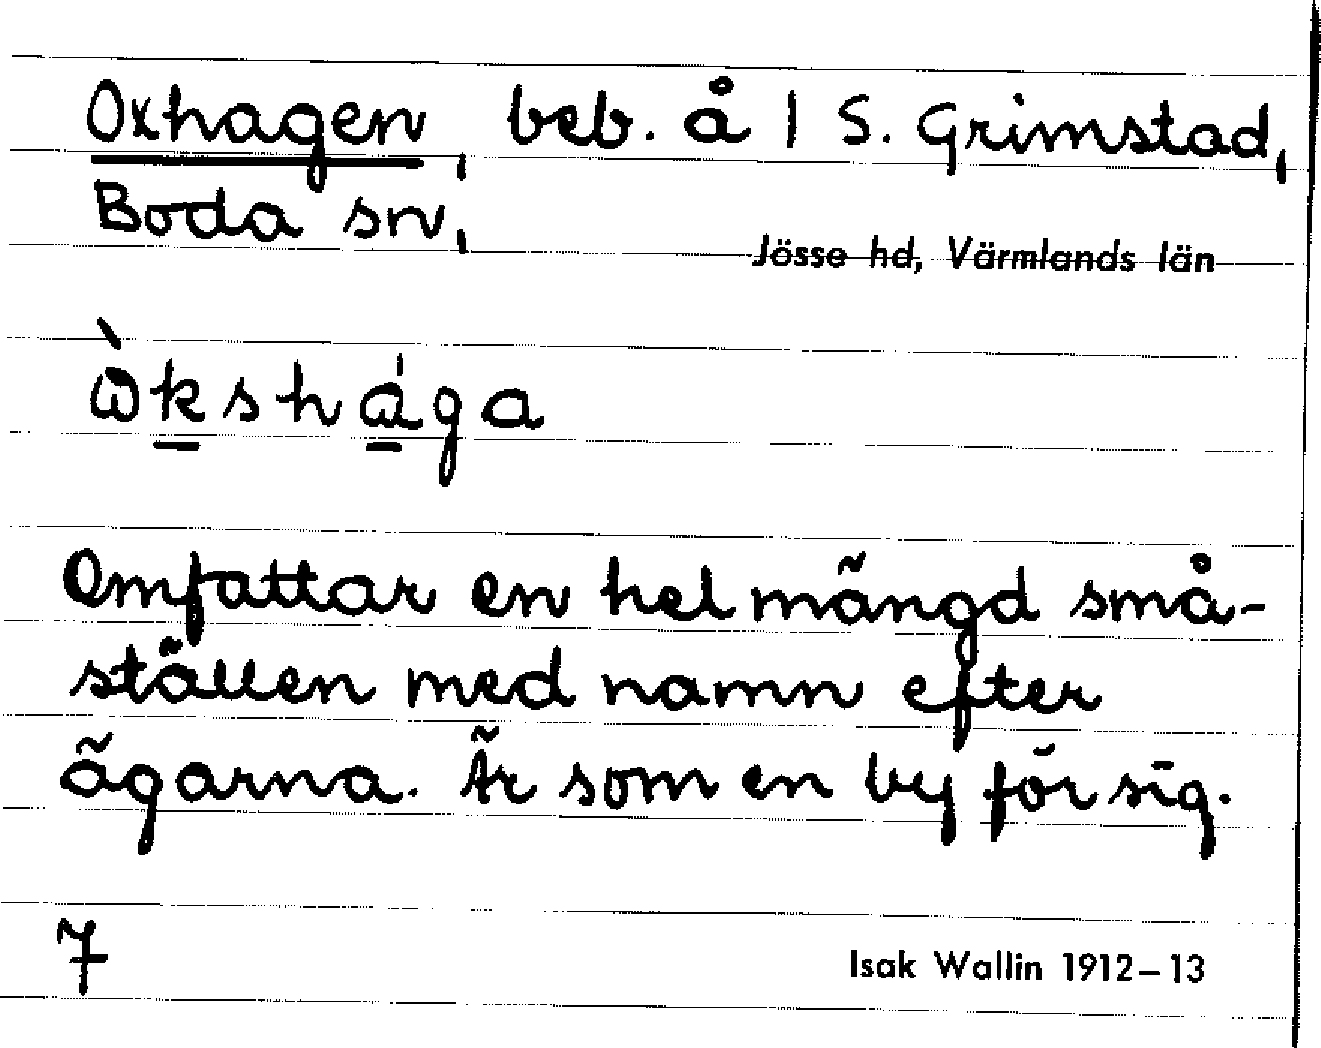 Oxhagen, beb. å 1 S. Grimstad,
Boda sn,
Jösse hd, Värmlands län
ὼkshága
Omfattar en hel mängd små-
ställen med namn efter
ägarna. Är som en by för sig.
7
Isak Wallin 1912–13